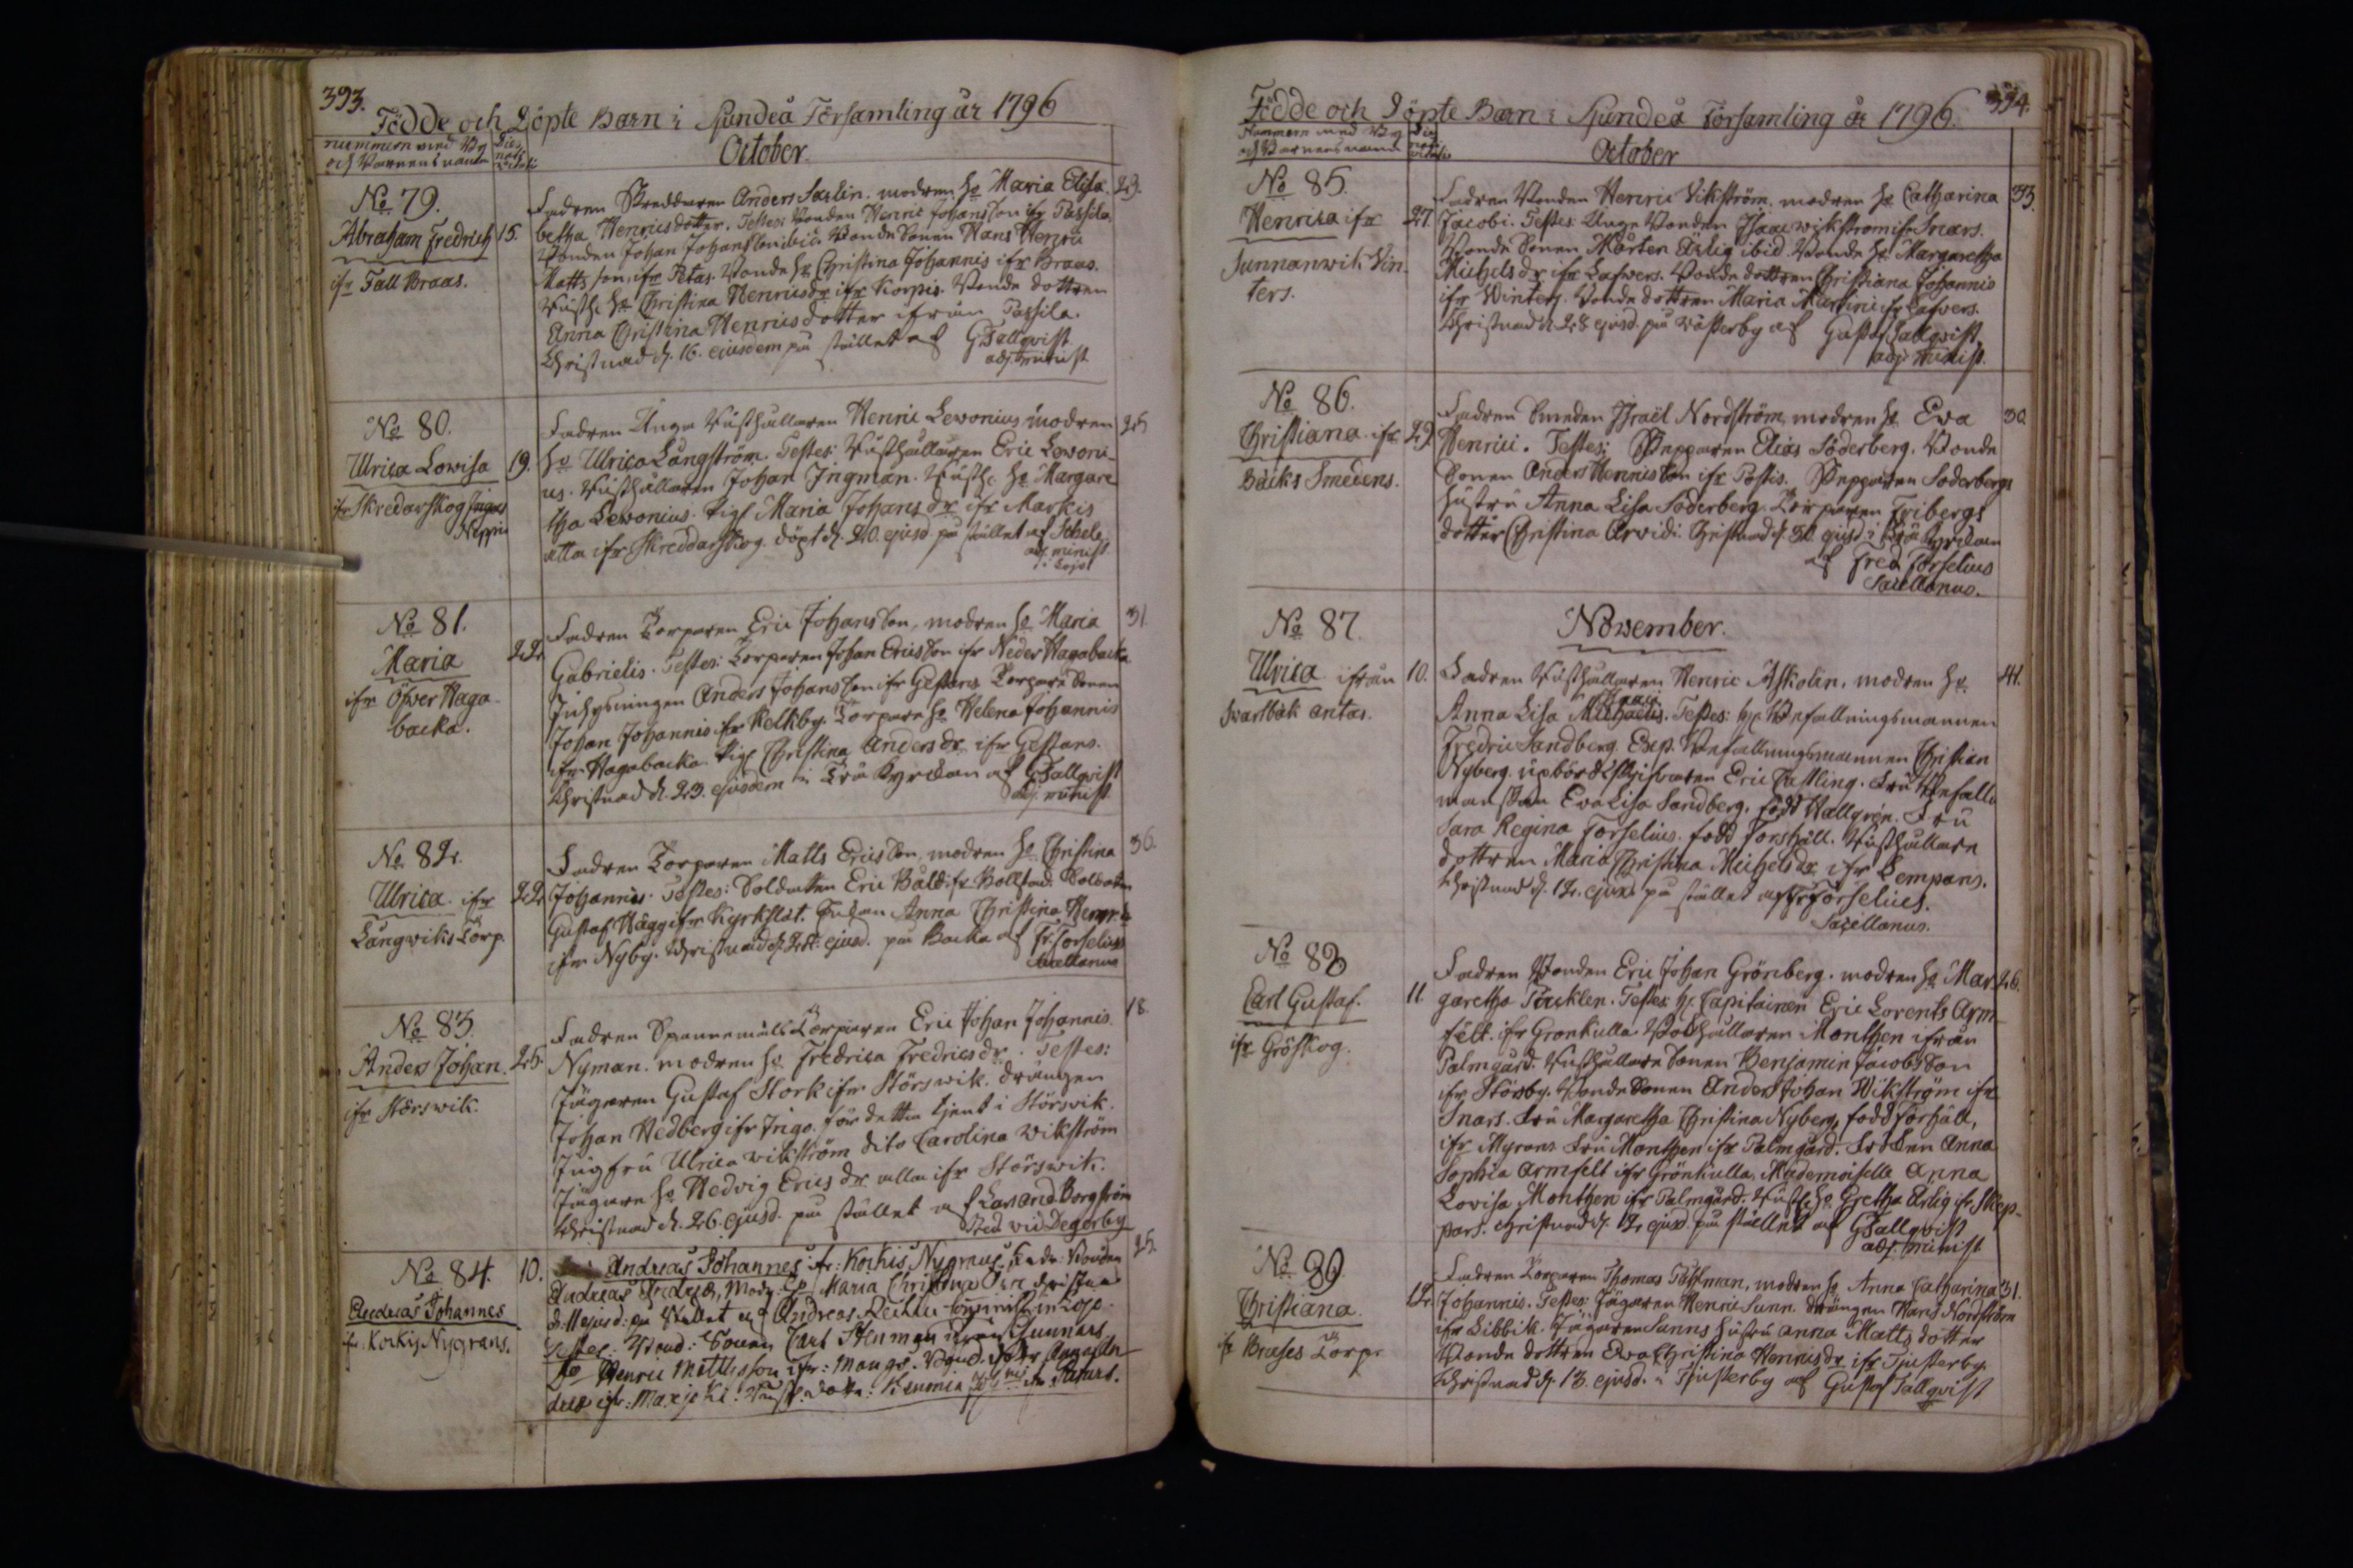 393.
Födde och Döpte Barn i Sjundeå Församling år 1796
nummern med By
och Barnens namn
Dies
nati
October
No 79.
Abraham Fredrich
ifr Fall Braas.
15.
Fadren Skreddaren Anders Saxlin. modren h: Maria Elisa-
29.
betha Henricsdotter. Testes: Bonden Henric Johansson ifr Passila.
Bonden Johan Johansson ibid. Bonde Sonen Hans Henric
Mattsson ifr Petas. Bonde h: Christina Johannis ifr Braas.
Rusth: h: Christina Henricsdr ifr Korpis. Bonde dottren
Anna Christina Henricsdotter ifrån Passila.
Christnad d. 16. ejusdem på stället af G Tallqvist
adj. minist.
No 80.
Ulrica Lowisa
ifr Skredarskog Ingers
19.
Fadren Unge Rusthållaren Henric Lewonius modren
25
h: Ulrica Långström. Testes: Rusthållaren Eric Lewoni-
us. Rusthållaren Johan Ingman. Rusth: h: Margare
tha Lewonius. Pig: Maria Johansdr ifr Markis
alla ifr Skreddarskog. döpt d. 20. ejusd. på stället af
adj. minist.
i Lojo
No 81.
Maria
ifr Öfwer Haga
backa.
22.
Fadren Torparen Eric Johansson, modren h: Maria
31.
Gabrielis. Testes: Torparen Johan Ericsson ifr Neder Hagabacka
Inhysningen Anders Johansson ifr Gestans Torpare Sonen
Johan Johannis ifr Kelkby. Torpare h: Helena Johannis
ifr Hagabacka. Pig: Christina Andersdr ifr Gestans.
Christnad d. 23. ejusdem i Trä Kyrckan af G Tallqvist
adj. minist.
No 82.
Ulrica ifr
Långwiks Torp
22
Fadren Torparen Matts Ericsson, modren h: Christina
36.
Johannis. Testes: Soldaten Eric Båld ifr Bollstad. Soldaten
Gustaf Hägg ifr Kyrkslät. Pigan Anna Christina Henr.
ifr Nyby. Christnad d. 24. ejusd. på Backa af Fr. Forselius
Sacellanus
No 83.
Anders Johan.
ifr Störswik.
25.
Fadren Torparen Eric Johan Johannis
18.
Nyman. modren h: Fredrica Fredricsdr. Testes:
Jägaren Gustaf Stork ifr Störswik. drängen
Johan Hedberg ifr Ingo. för detta tjent i Störsvik.
Jugfru Ulrica wikström dito Carolina wikström
Jägare h: Hedvig Ericsdr alla ifr Störswik.
Christnad d. 26. ejusd. på stället af Borgström
vid Degerby
No 84.
Andreas Johannes
ifr. Kockis Nygrans.
10.
Andreas Johannes ifr: Kockis Nygrans. Fadr: Bonden
25.
Andreas Fredric, Modr. h: Maria Christina
d. 11 ejusd: på Stället af Andreas
Testes: Bond: Sonen Carl Stenman ifrån Gunnars
Henric Mattsson ifr: Mangs.
ifr: Marjoki.
394.
Födde och Döpte Barn i Sjundeå Församling år 1796.
Nummern med By
och Barnens namn
Dies
nati
October
No 85.
Henrica ifr
Sunnanwik Vin-
ters.
27.
Fadren Bonden Henric Vikström, modren h: Catharina
33.
Jacobi. Testes: Unge Bonden Isaac wikström ifr Snars.
Bonde Sonen Mårten Ärlig ibid. Bonde h: Margaretha
Michelsdr ifr Lafwers. Bonde dottren Christiana Johannis
ifr Winters. Bonde dottren Maria Martini ifr Lafvers.
Christnad d. 28 ejusd. på Västerby af Gustaf Tallqvist,
adj. minist.
No 86.
Christiana ifr
Bäcks Smedens.
29.
Fadren Smeden Israël Nordström, modren h: Eva
30.
Henrici. Testes: Skepparen Elias Söderberg. Bonde
Sonen Anders Henricsson ifr Postis. Skepparen Soderbergs
hustru Anna Lisa Soderberg. Torparen Fribergs
dotter Christina Arvidi. Christnad d. 30 ejusd. i Trä Kyrckan
af Fred Forselius
Sacellanus.
November.
No 87.
Ulrica ifrån
Svartbäk antas.
10.
Fadren Rusthållaren Henric Askolin, modren h:
41.
Anna Lisa Michaelis. Testes: Hr Befallningsmannen
Fredric Sandberg. Exp. Befallningsmannen Christian
Nyberg. upbörds Skrifvaren Eric Castling. Fru Befall-
manskan Eva Lisa Sandberg, född Hallgrén. Fru
Sara Regina Forselius. född Forshäll. Rusthållare
dottren Maria Christina Michelsdr ifr Kempans.
Christnad d. 12. ejusd på stället af Fr Forselius.
Sacellanus.
No 88
Carl Gustaf.
ifr Gröskog.
11.
Fadren Bonden Eric Johan Grönberg. modren h: Mar-
26.
garetha Tircklen. Testes: Hr Capitainen Eric Lorents Arm-
felt. ifr Gronkulla. Bokhållaren Monthen ifrån
Palmgård. Rusthållare Sonen Benjamin Jacobsson
ifr Störsby. Bonde Sonen Anders Johan Wikström ifr
Snars. Fru Margaretha Christina Nyberg, född Forshäll,
ifr Myrans Fru Monthen ifr Palmgård. Fröken Anna
Sophia Armfelt ifr Grönkulla, Mademoiselle Anna
Lovisa Monthen ifr Palmgård. Rusth: h: Gretha Ärlig ifr Skep-
pars. Christnad d. 12 ejusd. på stället af G Tallqvist
adj. minist.
No 89.
Christiana.
ifr Bruses Torp.
12.
Fadren Torparen Thomas Töstman, modren h: Anna Catharina
31.
Johannis. Testes: Jägaren Henric Sunn. drängen Hans Nordström
ifr Libbik. Jägaren Sunns hustru Anna Mattsdotter
Bonde dottren Eva Christina Henricsdr ifr Tjusterby.
Christnad d. 13. ejusd. i Tjusterby af Gustaf Tallqvist